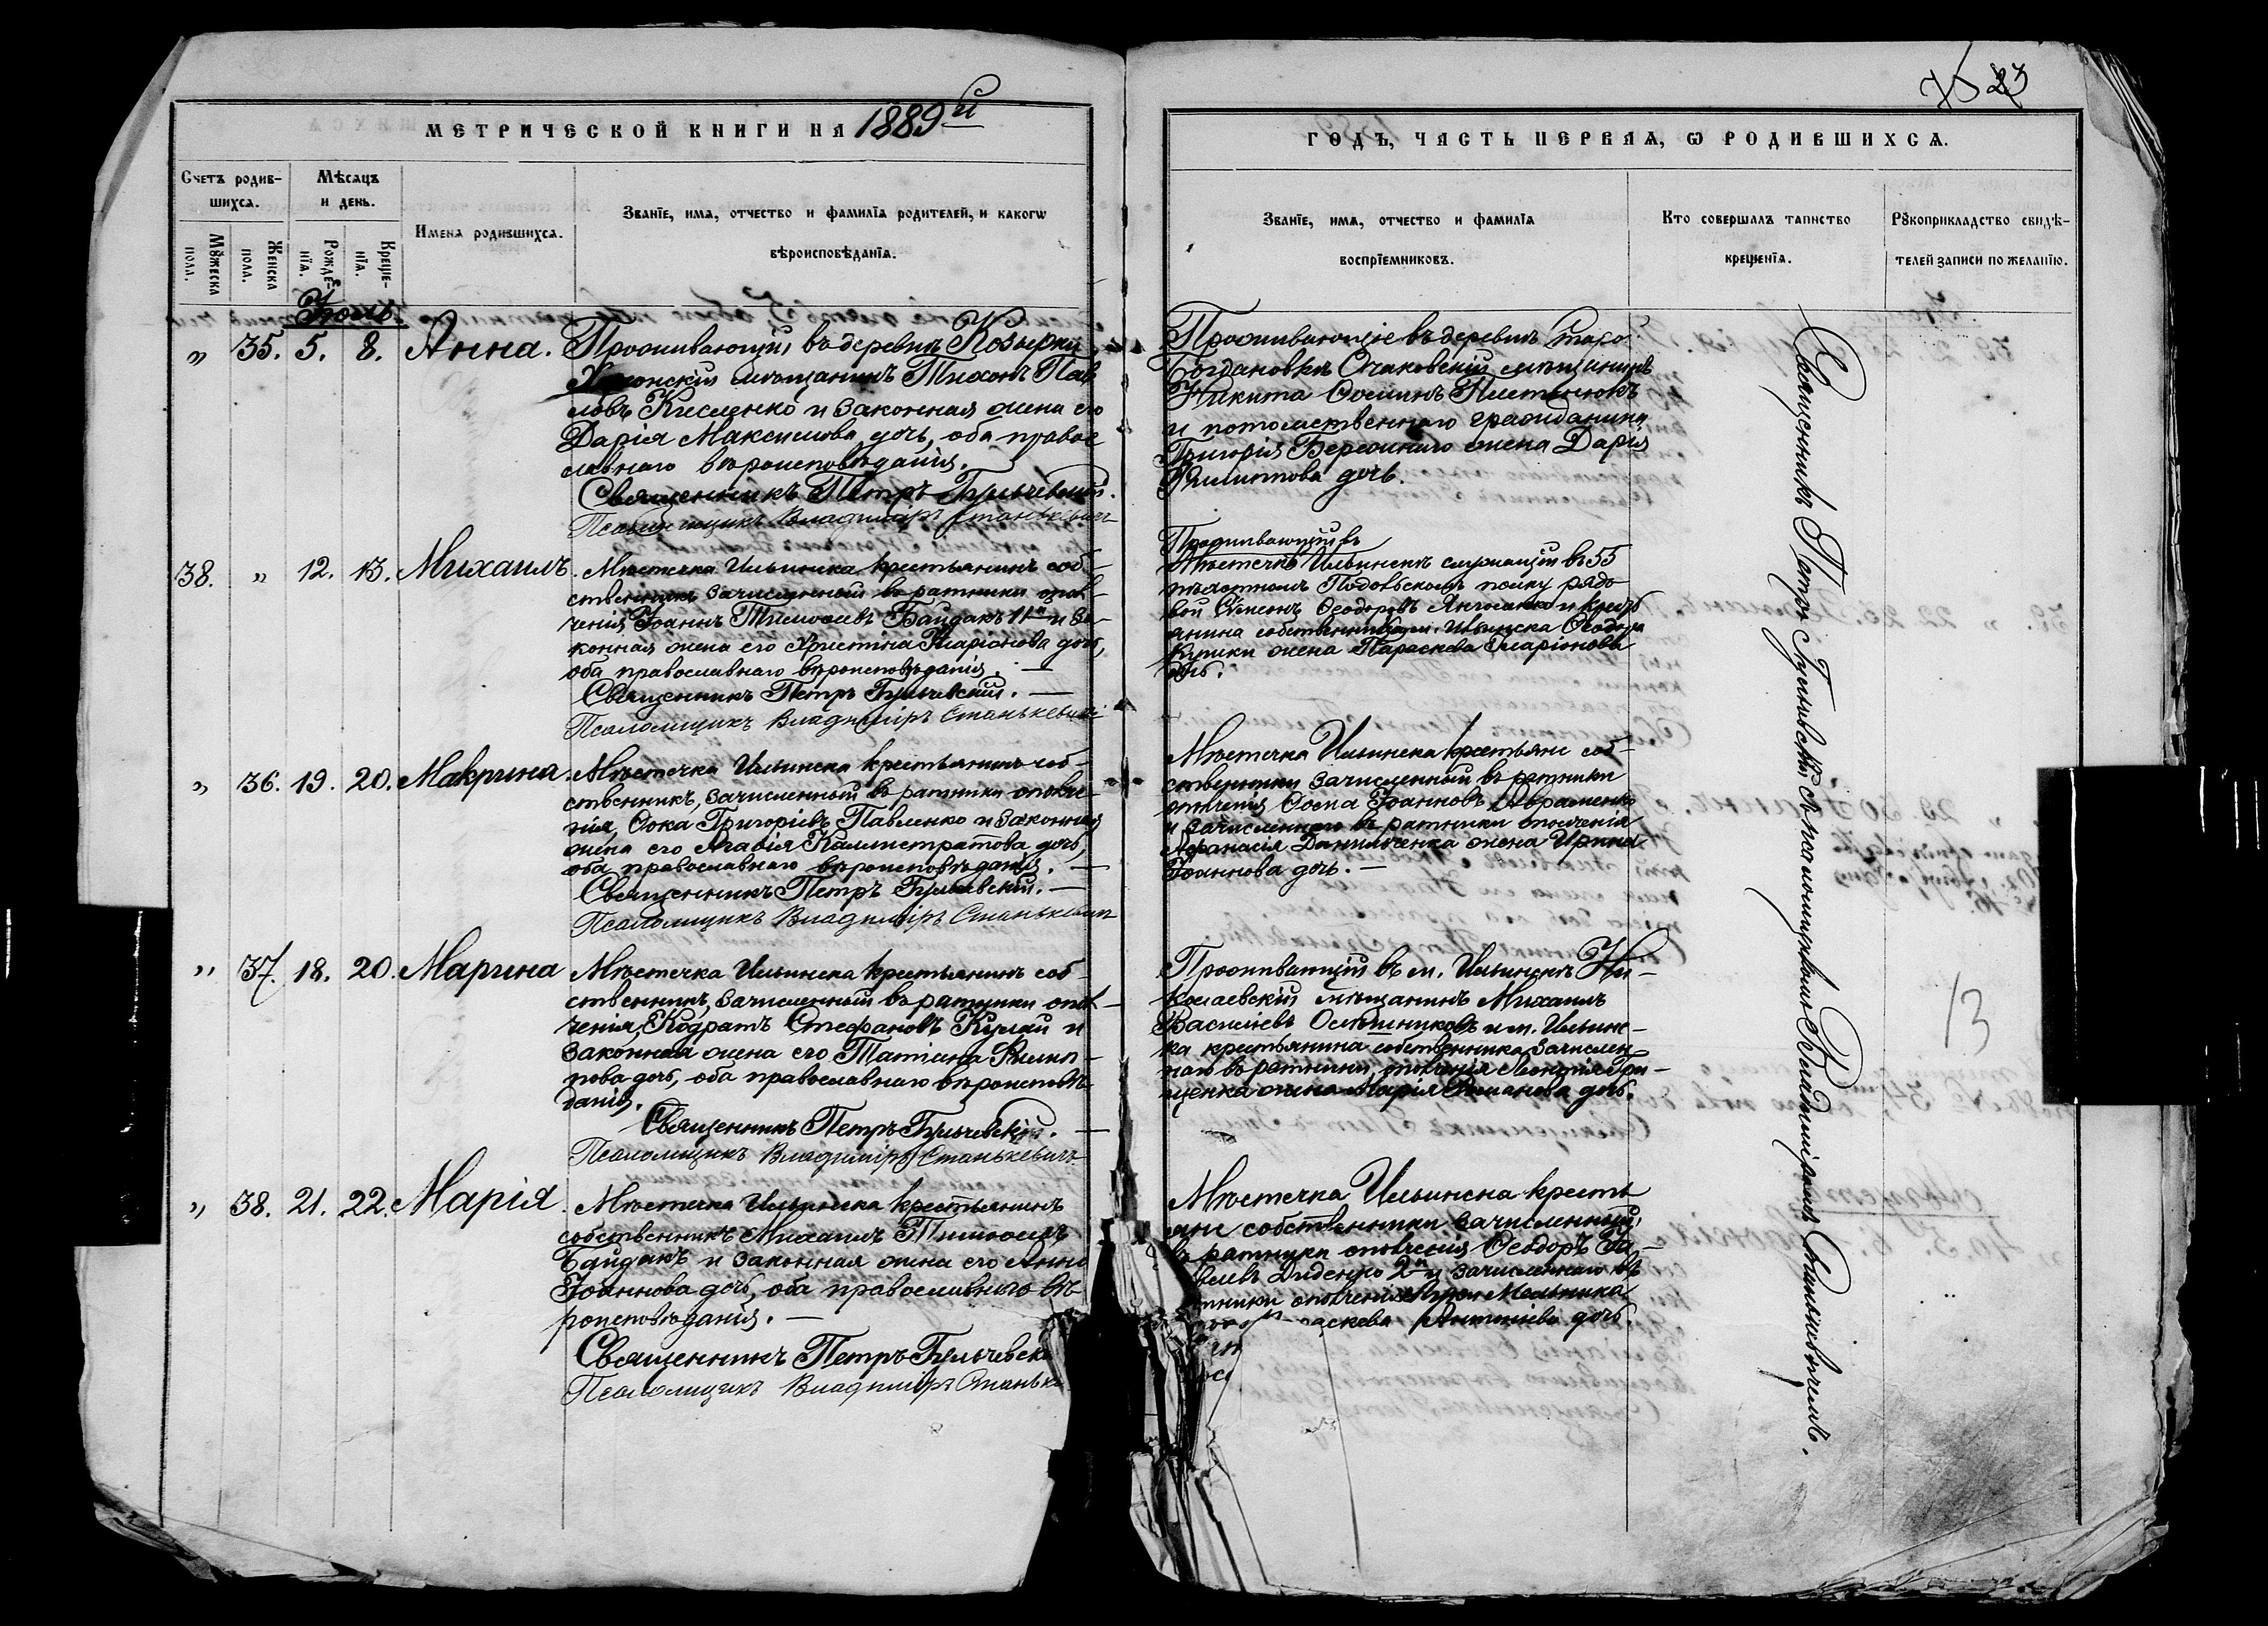 75 23
МЕТРИЧЕСКОЙ КНИГИ НА 1889й
Счетъ родив-
шихся.
Мѣсяцъ
и день.
Имена родившихся.
Званїе, имя, отчество и фамилїа родителей, и какогѡ
вѣроисповѣданїа.
Мꙋжеска
пола.
Женска
пола.
Рожде-
нїа.
Креще-
нїа.
Іюль
" 35. 5. 8. Анна.
Проживающій въ деревнѣ Козырки,
Херсонскій мѣщанинъ Тихонъ Пав
ловъ Кисленко и законная жена его
Дарія Максимова дочь, оба правос
лавнаго вѣроисповѣданія.
Священникъ Петръ Бульчевскій.
Псаломщикъ Владиміръ Станькевичъ
38. " 12. 13. Михаилъ.
Мѣстечка Ильинска крестьянинъ соб-
ственникъ зачисленный въ ратники опол-
ченія Іоаннъ Тимоѳеевъ Байдакъ 1й и за-
конная жена его Христина Иларіонова дочь,
оба православнаго вѣроисповѣданія. —
Священникъ Петръ Бульчевскій. —
Псаломщикъ Владиміръ Станькевичъ
" 36. 19. 20. Макрина.
Мѣстечка Ильинска крестьянинъ соб-
ственникъ, зачисленный въ ратники ополче-
нія, Ѳока Григорьевъ Павленко и законная
жена его Агаѳія Каллистратова дочь,
оба православнаго вѣроисповѣданія. —
Священникъ Петръ Бульчевскій. —
Псаломщикъ Владиміръ Станькевичъ
" 37. 18. 20. Марина
Мѣстечка Ильинска крестьянинъ соб-
ственникъ, зачисленный въ ратники опол-
ченія, Кодратъ Стефановъ Кулай и
законная жена его Татіана Филип-
пова дочь, оба православнаго вѣроисповѣ-
данія.
Священникъ Петръ Бульчевскій. —
Псаломщикъ Владиміръ Станькевичъ
" 38. 21. 22. Марія.
Мѣстечка Ильинска крестьянинъ
собственникъ Михаилъ Тимоѳеевъ
Байдакъ и законная жена его Анна
Іоаннова дочь, оба православнаго вѣ-
роисповѣданія. —
Священникъ Петръ Бульчевск
Псаломщикъ Владиміръ Станьке
ГОДЪ, ЧАСТЬ ПЕРВАЯ, Ѡ РОДИВШИХСѦ.
Званїе, имя, отчество и фамилїа
воспрїемниковъ.
Кто совершалъ таинство
крещенїа.
Рꙋкоприкладство свидѣ-
телей записи по желанїю.
Проживающіе въ деревнѣ Старо-
Богдановкѣ Очаковскій мѣщанинъ
Никита
и потомственнаго гражданина
Григорія Бережнаго жена Дарія
Филиппова дочь.
Проживающій въ
Мѣстечкѣ Ильинскѣ служащій въ 55
пѣхотномъ Подольскомъ полку рядо
вой Сѷмеонъ Ѳеодоровъ и крестъ
янина собственника м. Ильинска Ѳеодора
жена Параскева Иларіонова
дочь.
Мѣстечка Ильинска крестьяне соб-
ственники зачисленный въ ратники
ополченія Ѳома Іоанновъ Авраменко
и зачисленнаго въ ратники ополченія
Аѳанасія Данильченка жена Ирина
Іоаннова дочь. —
Проживающій въ м. Ильинскѣ Ни-
колаевскій мѣщанинъ Михаилъ
Васильевъ и м. Ильинс-
ка крестьянина собственника зачислен-
наго въ ратники ополченія Леонтія Гри-
щенка жена Марія Романова дочь.
Мѣстечка Ильинска кресть
яне собственники зачисленный
въ ратники ополченія Ѳеодоръ
Диденко 2й и зачисленнаго въ
тники ополченія Мельника
раскева Антоніева дочь.
Священникъ Петръ Бульчевскій съ псаломщикомъ Владиміромъ Станькевичемъ.
13